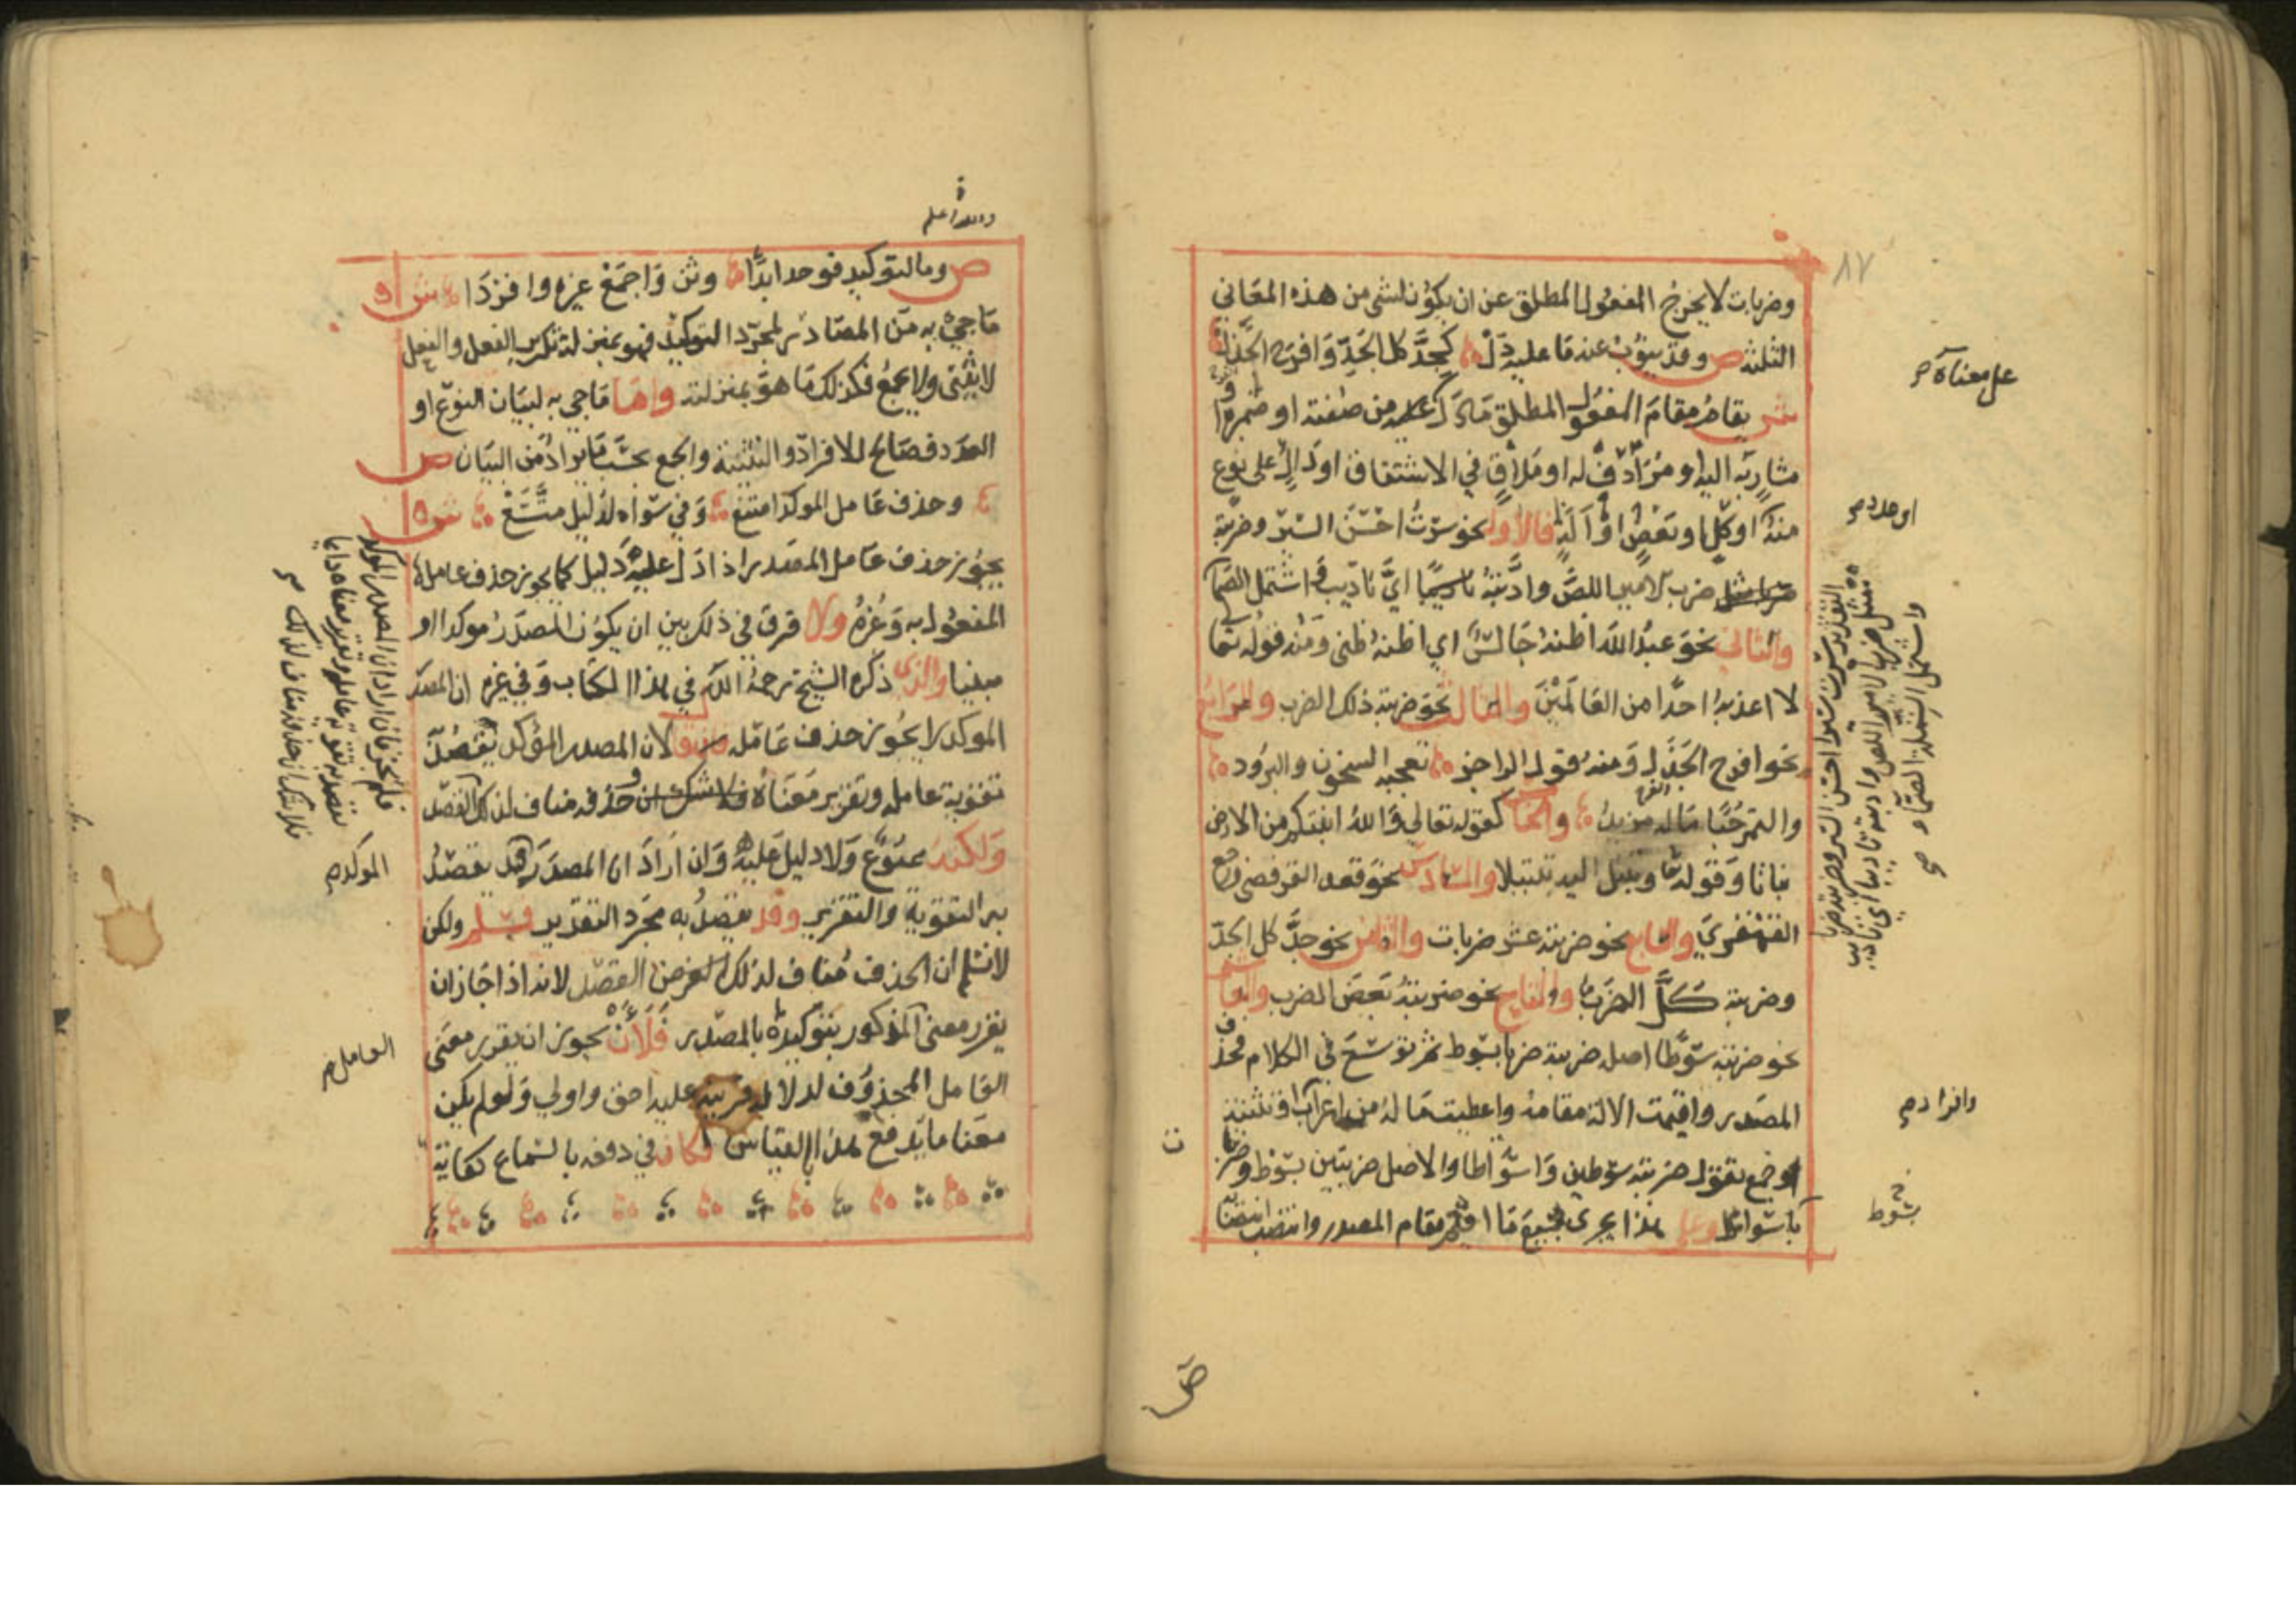 ٨٧
وضربات لا يخرج المفعول المطلق عن ان يكون لشى من هذه المعاني
الثلثة ص وقد ينوب عنه ما عليه دل كجد كل الجد وافرح الجذل
ش يقام مقام المفعول المطلق ما دل على من صفته او ضميره او
مشار به اليه او مرادف له او ملاق في الاشتقاق او دال على نوع
منه او كل او بعض او آلة فالاول نحو سرت احسن السير وضربته
ضرب الامير اللص وادبته اي تاديب واشتمل الصما
والثاني نحو عبد الله اظنه جالس اي اظنه ظنى ومنه قوله تعا
لا اعذبه احدا من العالمين والثالث نحو ضربته ذلك الضرب والرابع
نحو افرح الجذل ومنه قول الراجز يعجبه السخون والبرود
والتمر حبا ما له مزيد والخا كقوله تعالي والله انبتكم من الارض
نباتا وقوله تعا وتبتل اليه تبتيلا والسادس نحو قعد القرفصى ورجع
القهقرى والسابع نحو ضربته عشر ضربات والثامن نحو جد كل الجد
وضربته كل الضرب والتاسع نحو ضربته بعض الضرب والعا
نحو ضربته سوطا اصله ضربته ضربا بسوط ثم توسع في الكلام فحذف
المصدر واقيمت الالة مقامه واعطيت ما له من اعراب وتثنية
وجمع تقول ضربته سوطين واسواطا والاصل ضربتين بسوط وضربات
باسواط وعلى هذا يجرى جميع ما اقيم مقام المصدر وانتصب انتصابه
على معناه صح
او عدده صح
التقدير سرت سيرا احسن السير وضربته ضربا
مثل ضرب الامير اللص وادبته تاديبا اي تاديب
واشتمل الشملة الصماء صح
وافراد صح
بسوط
والله اعلم
ص وما لتوكيد فوحد ابدا وثن واجمع غيره وافردا ش
ما جي به من المصادر لمجرد التوكيد فهو بمنزلة تكرير الفعل والفعل
لا يثنى ولا يجمع فكذلك ما هو بمنزلته واما ما جي به لبيان النوع او
العدد فصالح للافراد والتثنية والجمع بحسب ما يراد من البيان ص
وحذف عامل الموكد امتنع وفي سواه لدليل متسع ش
يجوز حذف عامل المصدر اذا دل عليه دليل كما يجوز حذف عامل
المفعول به وغيره ولا فرق في ذلك بين ان يكون المصدر موكدا او
مبينا والذى ذكره الشيخ رحمه الله في هذا الكتاب وفي غيره ان المصدر
الموكد لا يجوز حذف عامله لان المصدر المؤكد يقصد
تقوية عامله وتقرير معناه فلا شك ان حذفه مناف لذلك القصد
ولكنه ممنوع ولا دليل عليه وان اراد ان المصدر قد يقصد
به التقوية والتقرير وقد يقصد به مجرد التقدير فمسلم ولكن
لا نسلم ان الحذف مناف لذلك القصد لانه اذا جاز ان
يقرر معنى المذكور بتوكيده بالمصدر فلان يجوز ان يقرر معنى
العامل المحذوف لدلالة قرينة عليه احق واولي ولو لم يكن
معنا ما يدفع هذا القياس لكان في دفعه بالسماع كفاية
الموكد صح
العامل صح